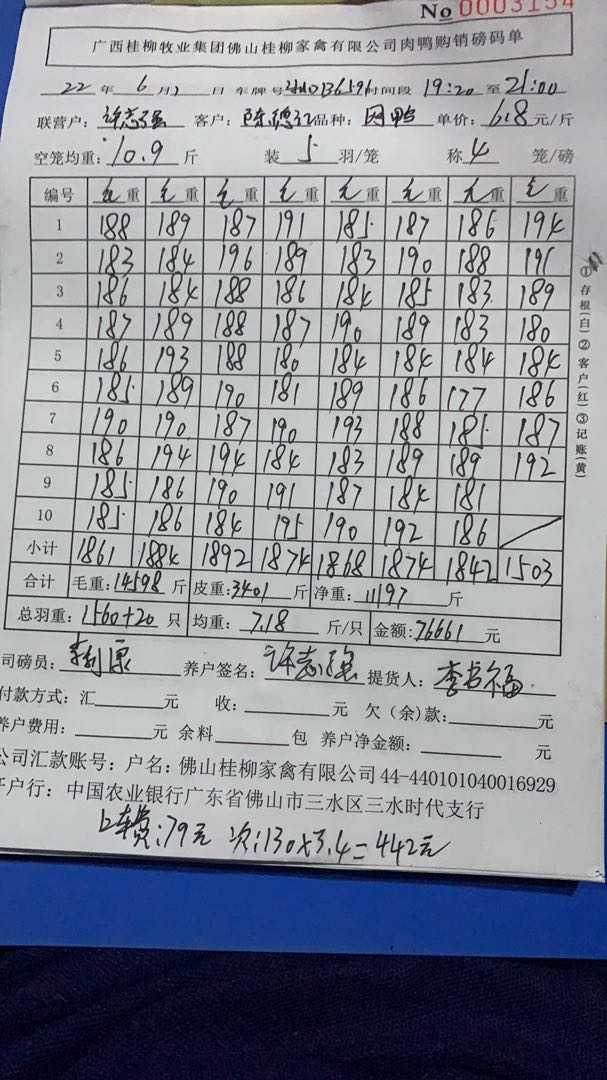 No 0003154
广西桂柳牧业集团佛山桂柳家禽有限公司肉鸭购销磅码单
22 年 6 月 日 车牌号 时间段 19:20 至 21:00
联营户: 许志强 客户: 陈德江 品种: 网鸭 单价: 6.8 元/斤
空笼均重: 10.9 斤 装 5 羽/笼 称 4 笼/磅
编号 毛重 毛重 毛重 毛重 毛重 毛重 毛重 毛重
1 188 189 187 191 185 187 186 194
2 183 184 196 189 183 190 188 191
3 186 184 188 186 184 185 183 189
4 187 189 188 187 190 189 183 180
5 186 193 188 180 184 184 184 184
6 185 189 190 181 189 186 177 186
7 190 190 187 190 193 188 185 187
8 186 194 194 184 183 189 189 192
9 185 186 190 191 187 184 181
10 185 186 184 195 190 192 186
小计 1861 1884 1892 1874 1868 1874 1842 1503
合计 毛重: 14598 斤 皮重: 3401 斤 净重: 11197 斤
总羽重: 1560+20 只 均重: 7.18 斤/只 金额: 76661 元
司磅员: 养户签名: 许志强 提货人: 李占福
付款方式: 汇 元 收: 元 欠(余)款: 元
养户费用: 元 余料 包 养户净金额: 元
公司汇款账号: 户名: 佛山桂柳家禽有限公司 44-440101040016929
开户行: 中国农业银行广东省佛山市三水区三水时代支行
上车费: 79元 次: 130×3.4=442元
①存根(白)②客户(红)③记账(黄)